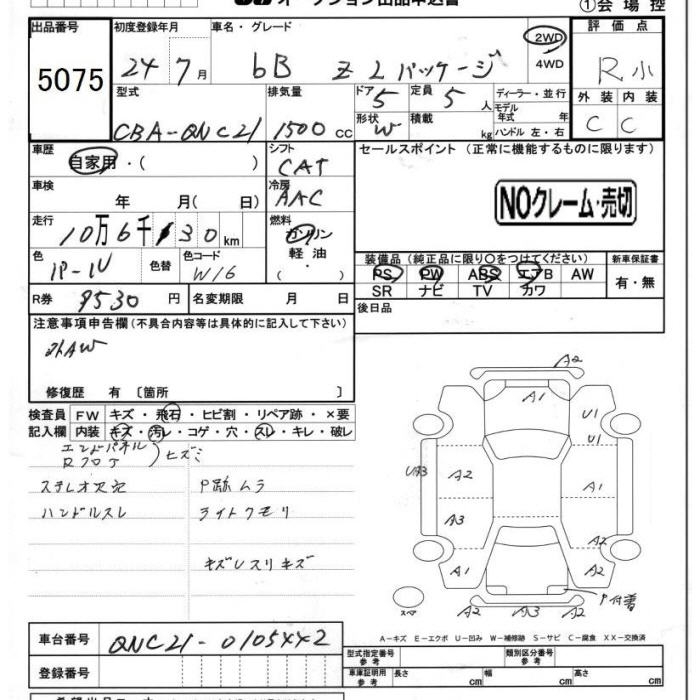 オークション出品申込書
①会場控
出品番号 初度登録年月 車名・グレード 評価点
5075 24 7月 bB Z Lパッケージ 2WD 4WD R小
型式 排気量 ドア 5 定員 5人 ディーラー・並行 外装 内装
CBA-QNC21 1500cc 形状 W 積載 kg モデル年式 年 ハンドル 左・右 C C
車歴 シフト セールスポイント (正常に機能するものに限ります)
自家用・( ) CAT
車検 冷房 NOクレーム・売切
年 月( 日) AAC
走行 燃料
10万6千 30km ガソリン
色 色替 色コード 軽油・
パール W16 ( )
装備品 (純正品に限り○をつけてください) 新車保証書
PS PW ABS エアB AW 有・無
SR ナビ TV カワ
R券 9530円 名変期限 月 日 後日品
注意事項申告欄(不具合内容等は具体的に記入して下さい)
外AW
修復歴 有 〔箇所 〕
検査員 FW キズ・飛石・ヒビ割・リペア跡・×要
記入欄 内装 キズ・汚レ・コゲ・穴・スレ・キレ・破レ
エンドパネル
Rフロア ヒズミ
ステレオ欠品 P跡ムラ
ハンドルスレ ライトクモリ
キズUスリキズ
A2
A1
U1
U1
UA3
A2
A1
A3
A2
A1
A2
P付着
スペア
A2 A3 A2
A-キズ E-エクボ U-凹み W-補修跡 S-サビ C-腐食 XX-交換済
車台番号 QNC21-0105442
型式指定番号 参考 類別区分番号 参考
登録番号 車庫証明用 参考 長さ cm 幅 cm 高さ cm